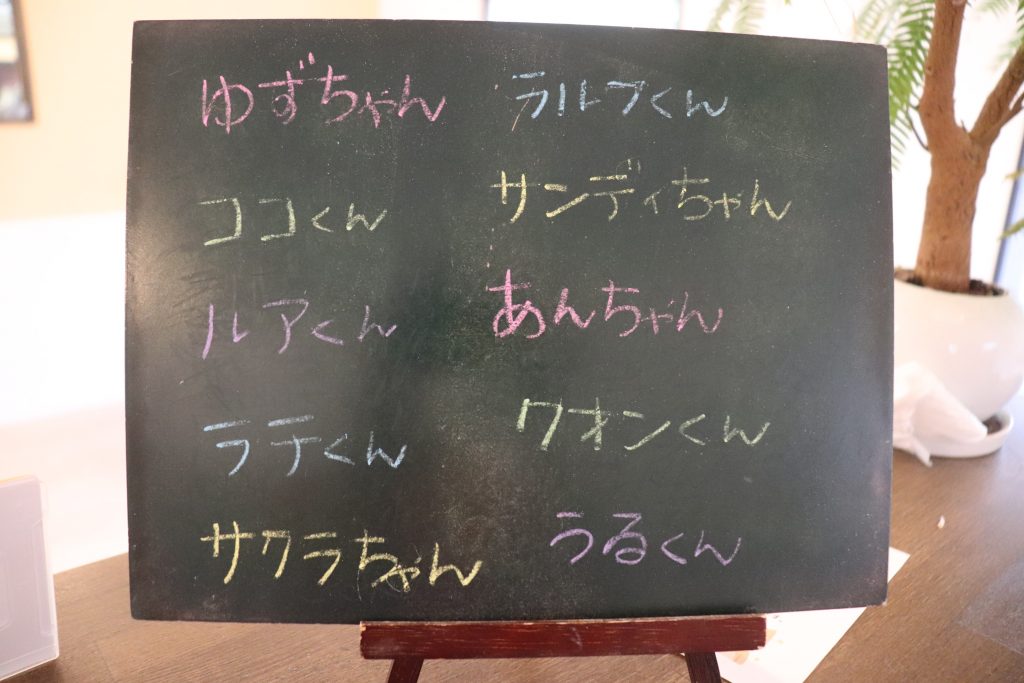 ゆずちゃん
ココくん
ルアくん
ラテくん
サクラちゃん
ラルフくん
サンディちゃん
あんちゃん
クオンくん
うるくん